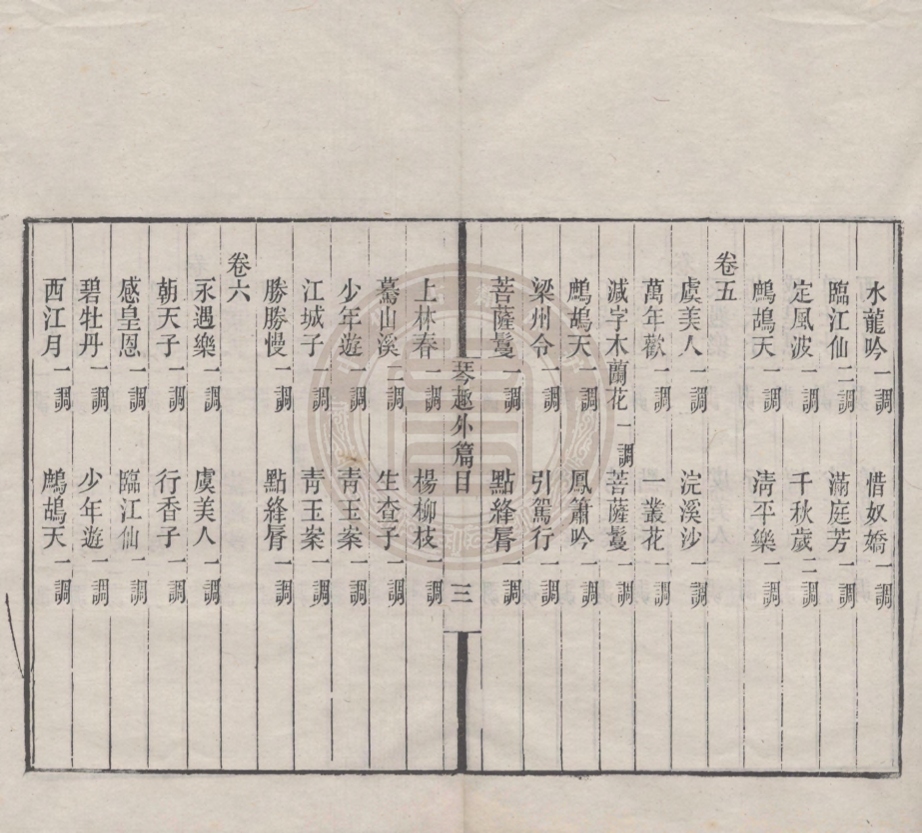 水龍吟一調　惜奴嬌一調
臨江仙二調　滿庭芳一調
定風波一調　千秋歲二調
鷓鴣天一調　清平樂一調
卷五
虞美人一調　浣溪沙一調
萬年歡一調　一叢花一調
減字木蘭花一調　菩薩蠻一調
鷓鴣天一調　鳳簫吟一調
梁州令一調　引駕行一調
菩薩鬘一調　點絳脣一調
琴趣外篇目　三
上林春一調　楊柳枝一調
驀山溪二調　生查子一調
少年遊一調　靑玉案一調
江城子一調　靑玉案一調
勝勝慢一調　點絳脣一調
卷六
永遇樂一調　虞美人一調
朝天子一調　行香子一調
感皇恩一調　臨江仙一調
碧牡丹一調　少年遊一調
西江月一調　鷓鴣天一調